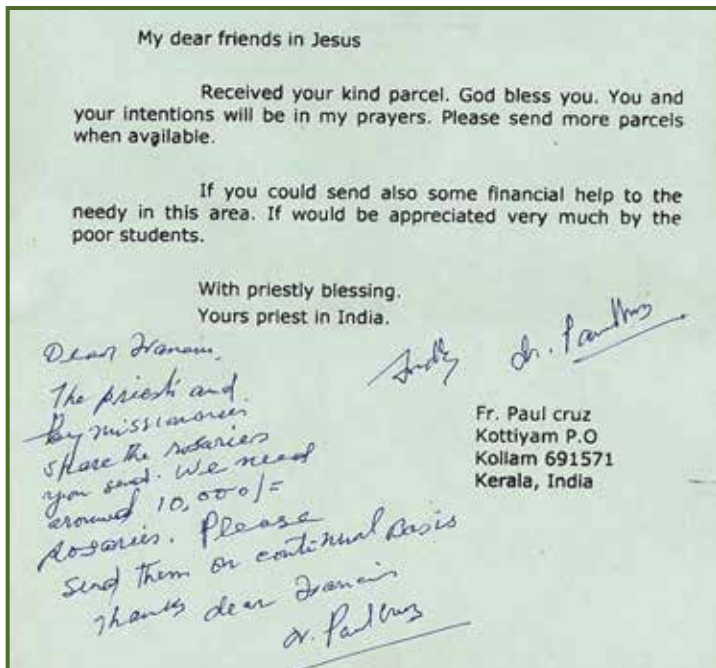 My dear friends in Jesus
Received your kind parcel. God bless you. You and
your intentions will be in my prayers. Please send more parcels
when available.
If you could send also some financial help to the
needy in this area. If would be appreciated very much by the
poor students.
With priestly blessing.
Yours priest in India.
Fr. Paul cruz
Fr. Paul cruz
Kottiyam P.O
Kollam 691571
Kerala, India
Dear Francis,
The priests and
missionaries
share the rosaries
you send. We need
around 10,000/=
rosaries. Please
send them on continual basis
Thanks dear Francis
Fr. Paul Cruz